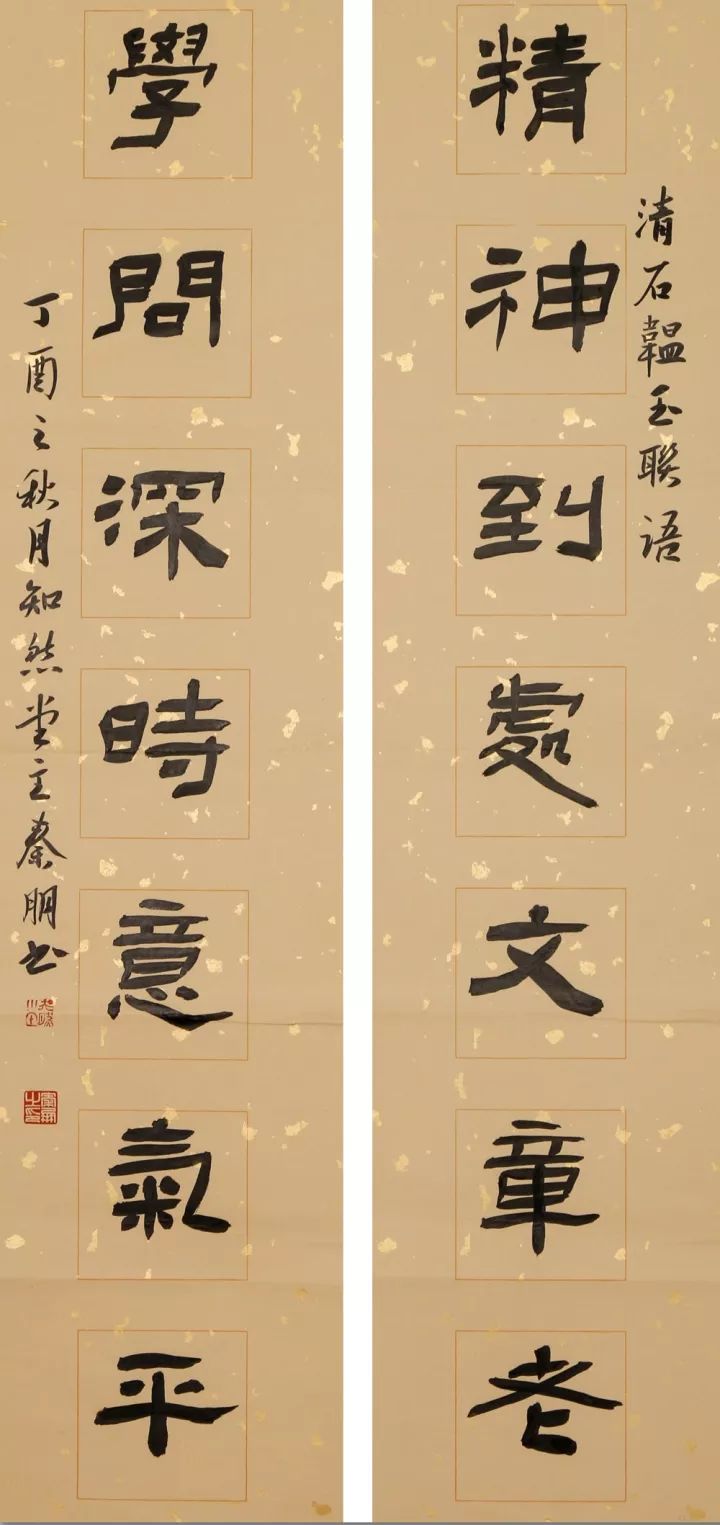 清石韞玉聯语
精神到處文章老
學問深時意氣平
丁酉之秋月知然堂主秦朋书